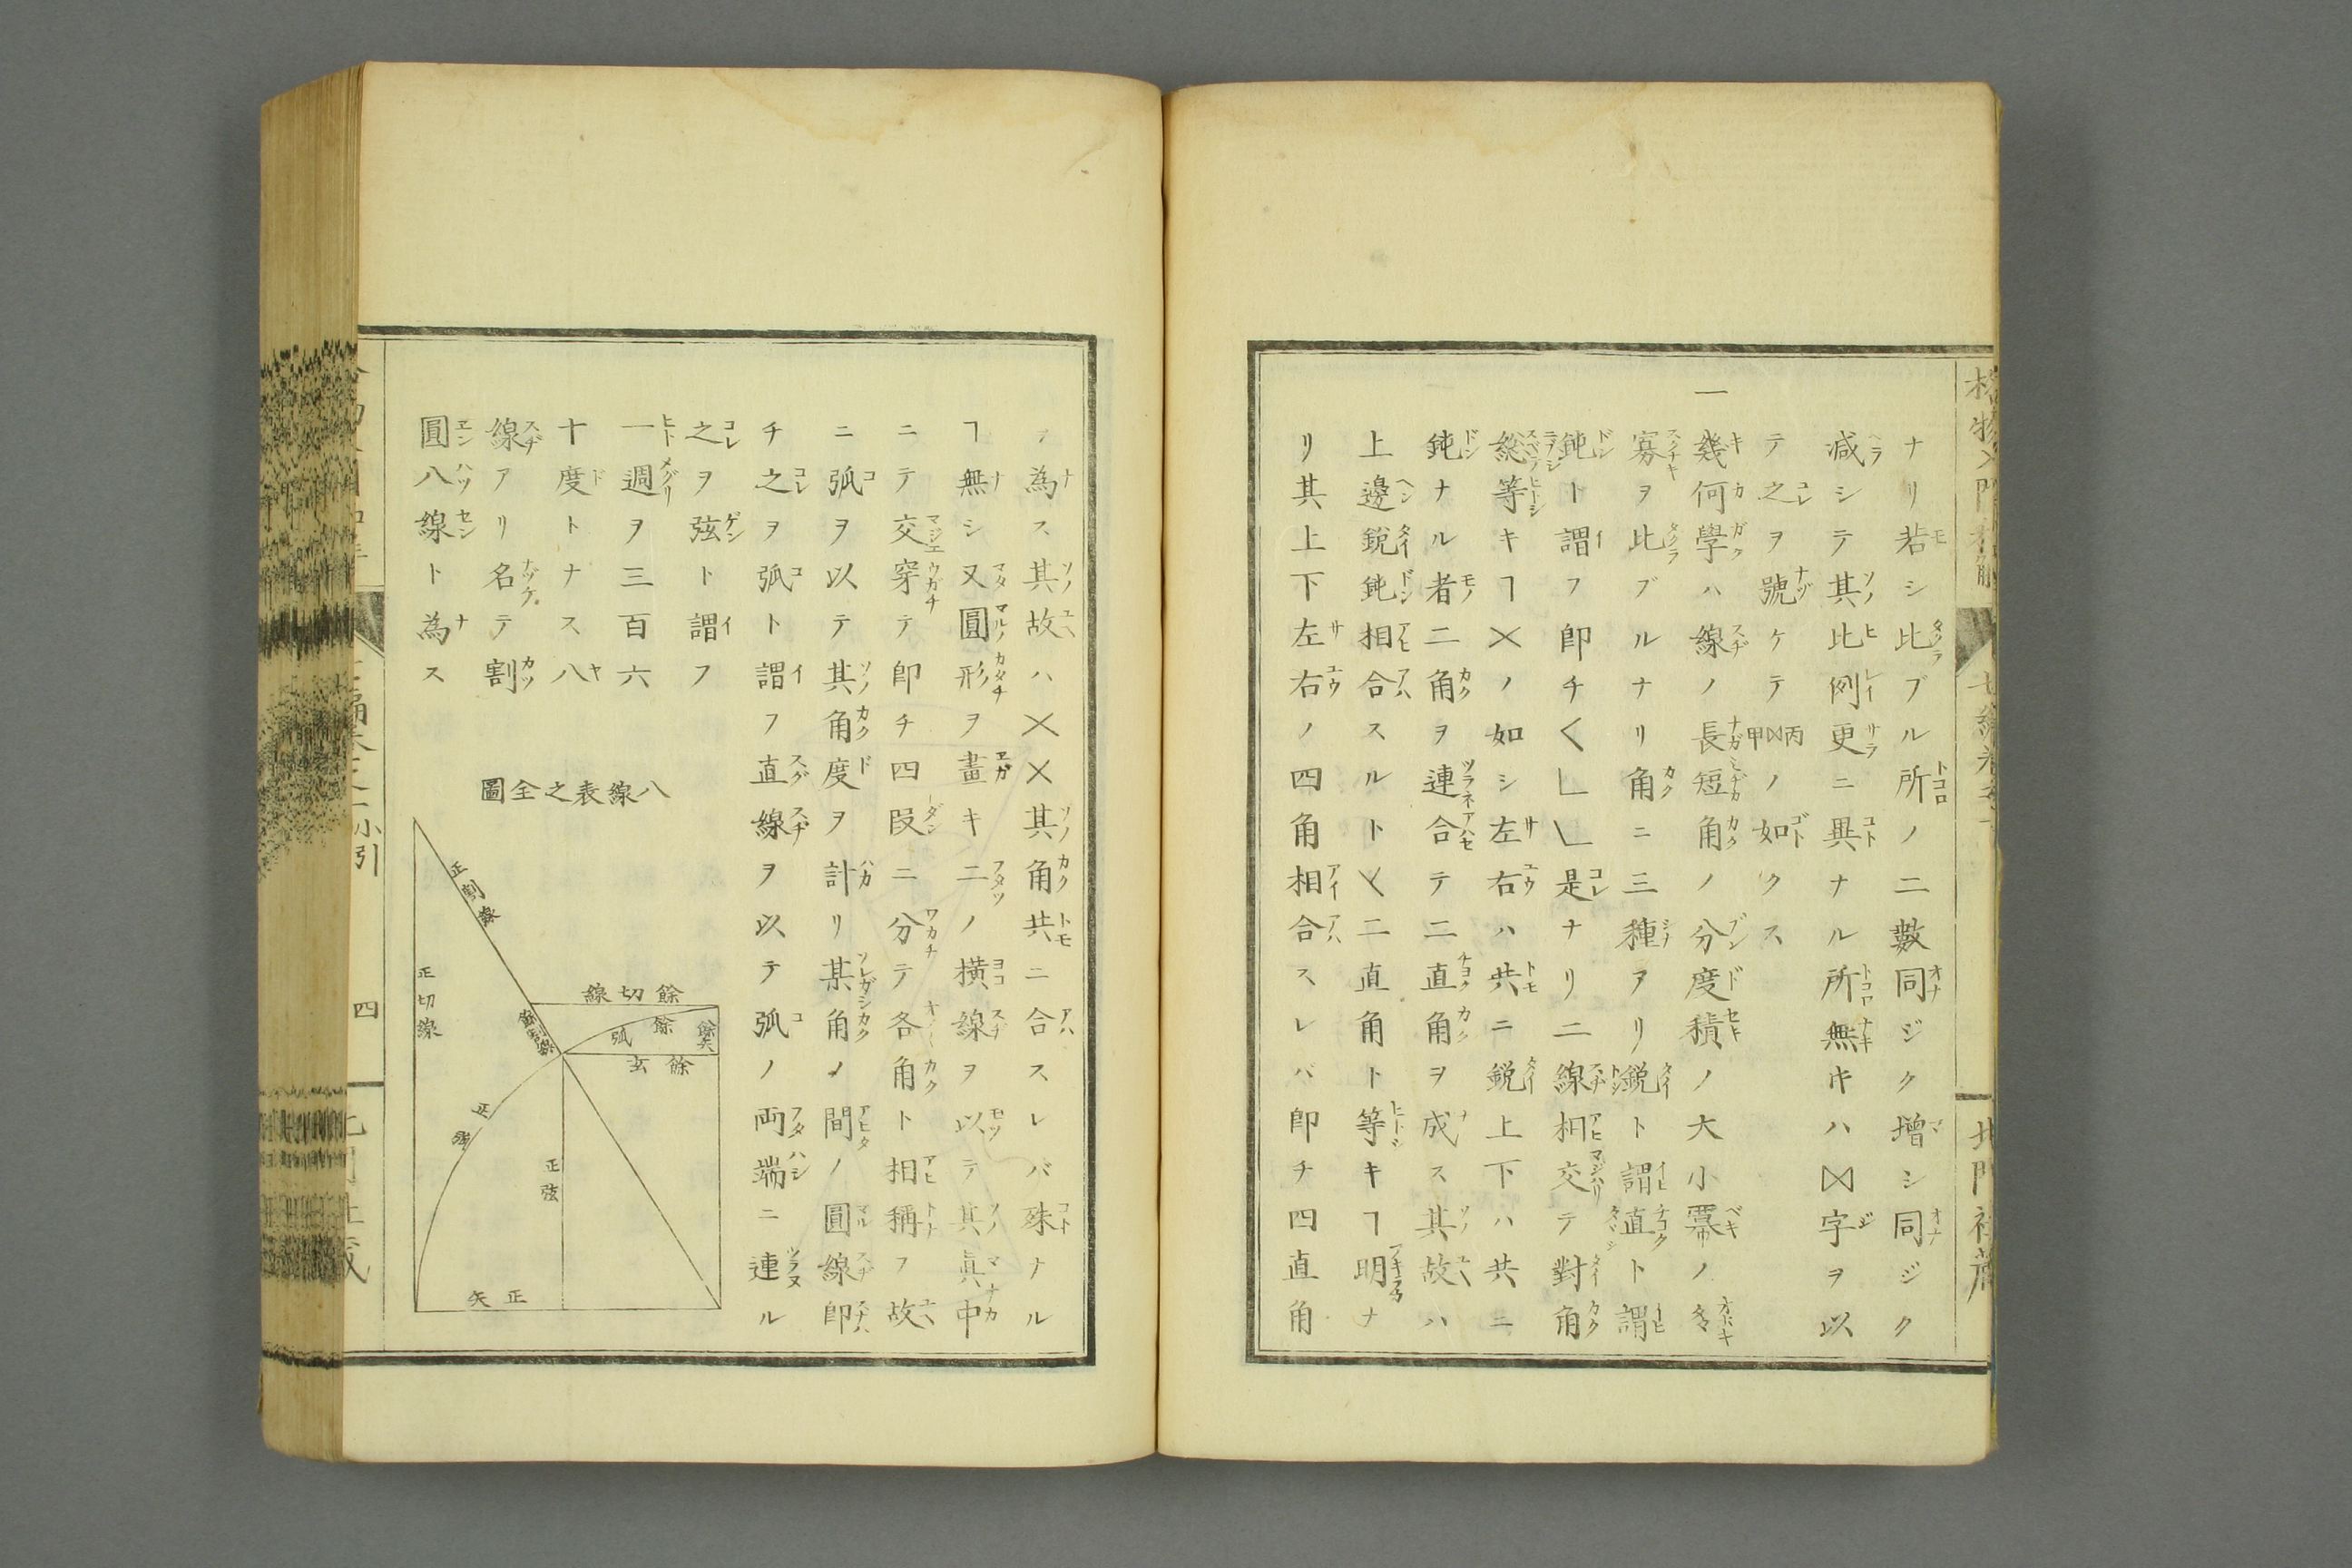 ナリ若シ比ブル所ノ二數同ジク增シ同ジク
減シテ其比例更ニ異ナル所無キハ⋈字ヲ以
テ之ヲ號ケテ甲⋈丙ノ如クス
一幾何學ハ線ノ長短角ノ分度積ノ大小冪ノ多
寡ヲ比ブルナリ角ニ三種アリ銳ト謂直ト謂
鈍ト謂フ卽チ∠∟是ナリ二線相交テ對角
緫等キヿ×ノ如シ左右ハ共ニ銳上下ハ共ニ
鈍ナル者二角ヲ連合テ二直角ヲ成ス其故ハ
上邊銳鈍相合スルト二直角ト等キヿ明ナ
リ其上下左右ノ四角相合スレバ卽チ四直角
ヲ為ス其故ハ××其角共ニ合スレバ殊ナル
ヿ無シ又圓形ヲ畫キ二ノ橫線ヲ以テ其眞中
ニテ交穿テ卽チ四段ニ分テ各角ト相稱フ故
ニ弧ヲ以テ其角度ヲ計リ某角ノ間ノ圓線卽
チ之ヲ弧ト謂フ直線ヲ以テ弧ノ両端ニ連ル
之ヲ弦ト謂フ
一週ヲ三百六
十度トナス八
線アリ名テ割
圓八線ト為ス
八線表之全圖
正割線
正切線
餘切線
餘割線
餘弧
餘矢
餘玄
正弧
正弦
正矢
小引
四